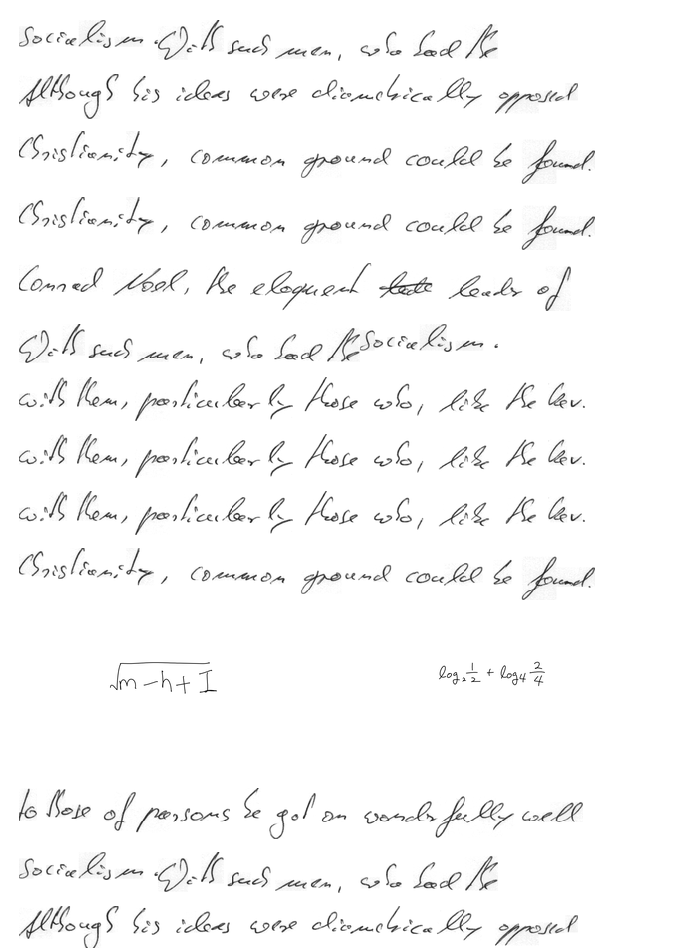 Socialism. With such men, who had the
Although his ideas were diametrically opposed
Christianity, common ground could be found.
Christianity, common ground could be found.
Conrad Noel, the eloquent leader of
With such men, who had the Socialism.
with them, particularly those who, like the Rev.
with them, particularly those who, like the Rev.
with them, particularly those who, like the Rev.
Christianity, common ground could be found.
√(m-h+I) log₂ 1/2 + log₄ 2/4
to those of persons he got on wonderfully well
Socialism. With such men, who had the
Although his ideas were diametrically opposed